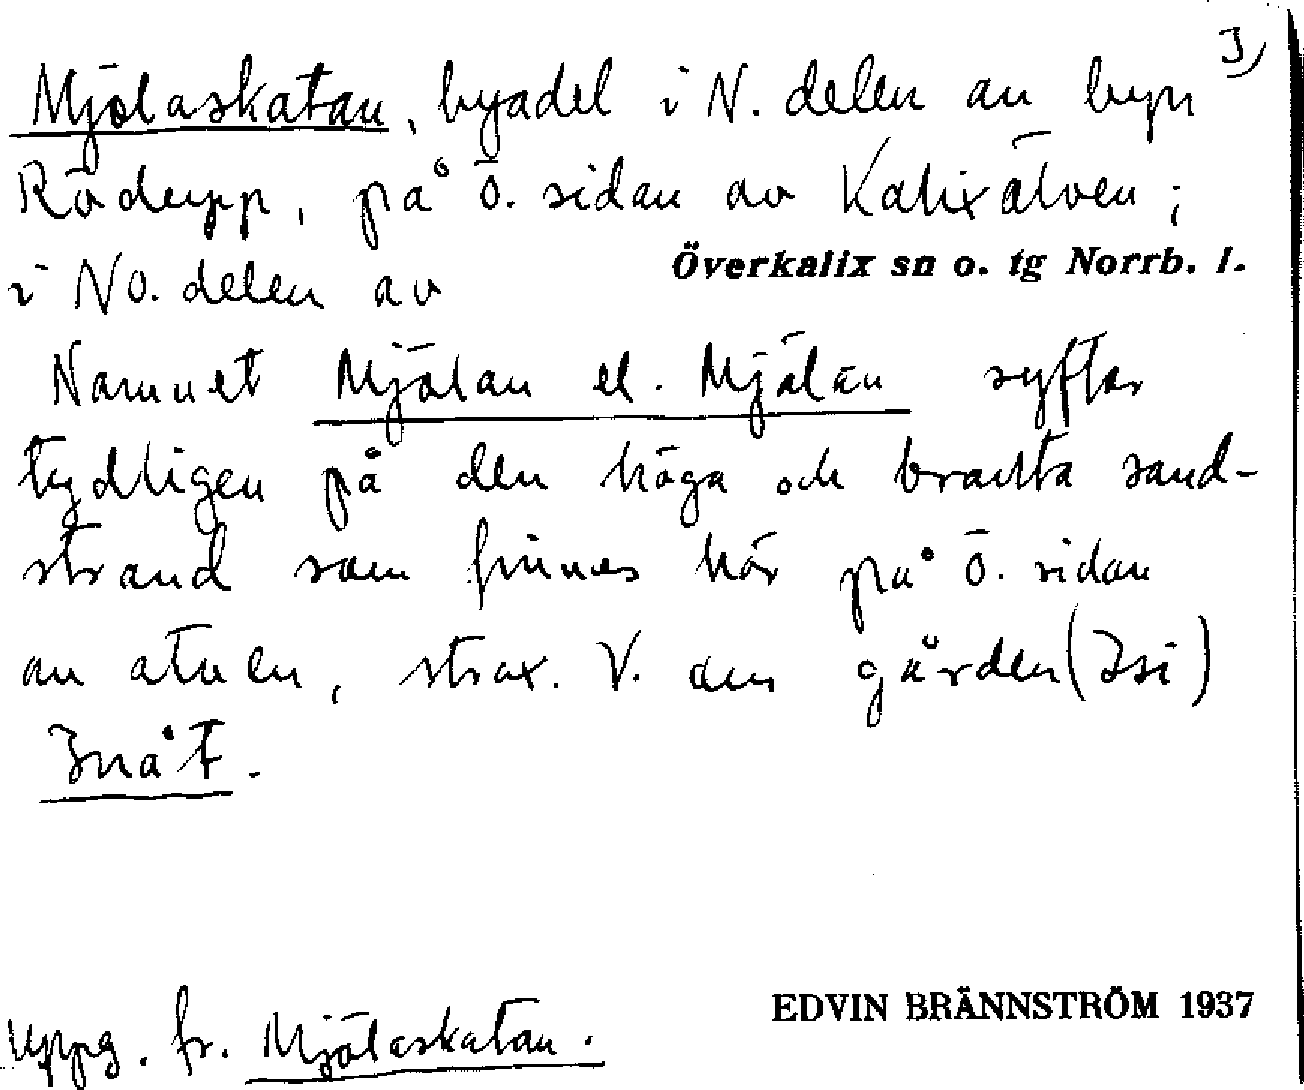 3)
Mjölaskatan, byadel i N. delen av byn
Rödupp, på Ö. sidan av Kalixälven;
i NO. delen av Överkalix sn o. tg Norrb. l.
Namnet Mjölan el. Mjälan syftar
tydligen på den höga och branta sand-
strand som finnes här på Ö. sidan
av älven, strax V. om gården (Isi)
Inåt.
EDVIN BRÄNNSTRÖM 1937
Uppg. fr. Mjölaskatan.